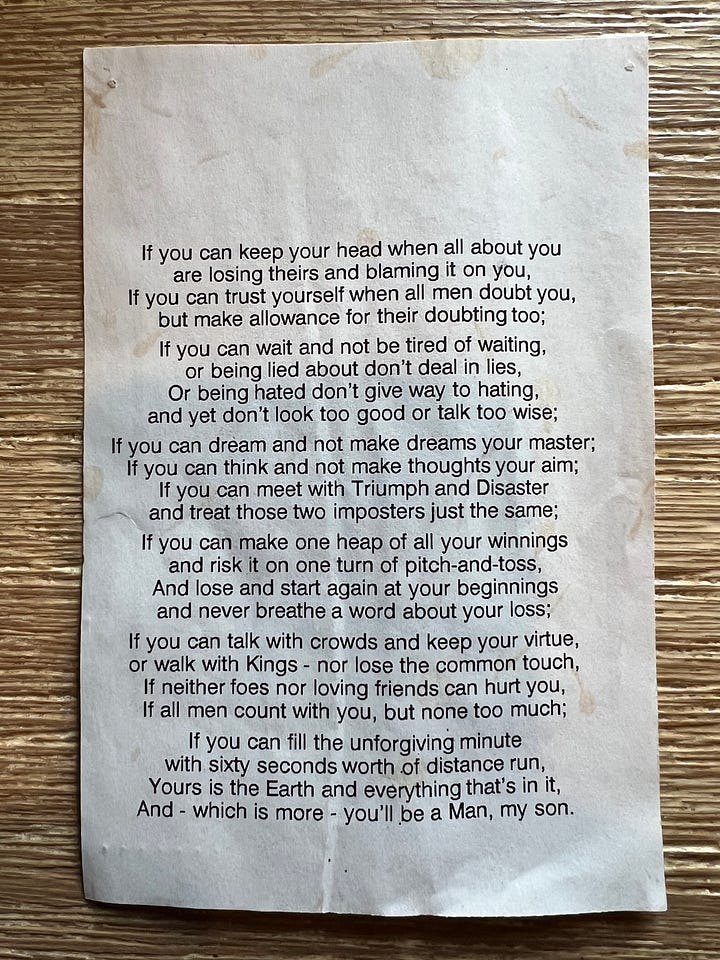 If you can keep your head when all about you
are losing theirs and blaming it on you,
If you can trust yourself when all men doubt you,
but make allowance for their doubting too;
If you can wait and not be tired of waiting,
or being lied about don't deal in lies,
Or being hated don't give way to hating,
and yet don't look too good or talk too wise;
If you can dream and not make dreams your master;
If you can think and not make thoughts your aim;
If you can meet with Triumph and Disaster
and treat those two imposters just the same;
If you can make one heap of all your winnings
and risk it on one turn of pitch-and-toss,
And lose and start again at your beginnings
and never breathe a word about your loss;
If you can talk with crowds and keep your virtue,
or walk with Kings - nor lose the common touch,
If neither foes nor loving friends can hurt you,
If all men count with you, but none too much;
If you can fill the unforgiving minute
with sixty seconds worth of distance run,
Yours is the Earth and everything that's in it,
And - which is more - you'll be a Man, my son.